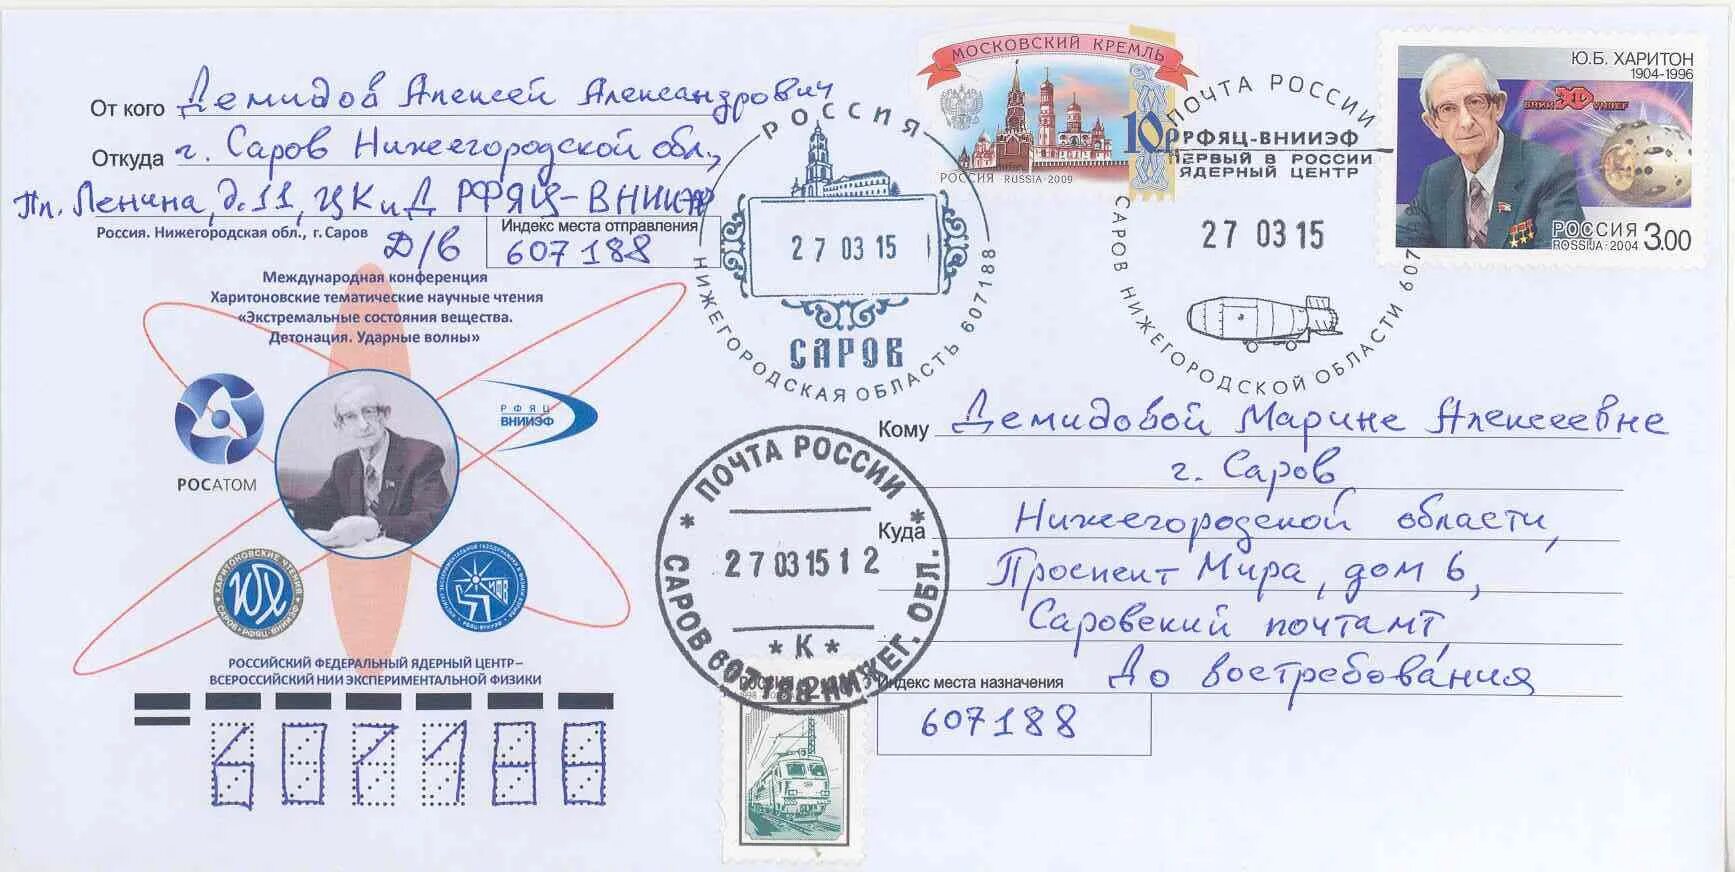 От кого Демидов Алексей Александрович
Откуда г. Саров Нижегородской обл.,
Пл. Ленина, д. 11, ЦК и Д РФЯЦ-ВНИИЭФ
Россия. Нижегородская обл., г. Саров
Д/В
Индекс места отправления
607188
Международная конференция
Харитоновские тематические научные чтения
«Экстремальные состояния вещества.
Детонация. Ударные волны»
РОСАТОМ
РФЯЦ
ВНИИЭФ
ХАРИТОНОВСКИЕ ЧТЕНИЯ
САРОВ • РФЯЦ-ВНИИЭФ
ЮХ
ИФВ
РФЯЦ-ВНИИЭФ
РОССИЙСКИЙ ФЕДЕРАЛЬНЫЙ ЯДЕРНЫЙ ЦЕНТР–
ВСЕРОССИЙСКИЙ НИИ ЭКСПЕРИМЕНТАЛЬНОЙ ФИЗИКИ
607188
РОССИЯ
27 03 15
САРОВ
НИЖЕГОРОДСКАЯ ОБЛАСТЬ 607188
МОСКОВСКИЙ КРЕМЛЬ
10р
РОССИЯ RUSSIA·2009
ПОЧТА РОССИИ
РФЯЦ-ВНИИЭФ
ПЕРВЫЙ В РОССИИ
ЯДЕРНЫЙ ЦЕНТР
27 03 15
САРОВ НИЖЕГОРОДСКОЙ ОБЛАСТИ 607188
Ю.Б. ХАРИТОН
1904-1996
РОССИЯ
ROSSIJA·2004
3.00
ПОЧТА РОССИИ
27 03 15 12
* К *
САРОВ 607188 НИЖЕГ. ОБЛ.
РОССИЯ
Кому Демидовой Марине Алексеевне
г. Саров
Куда Нижегородской области,
Проспект Мира, дом 6,
Саровский почтамт
До востребования
Индекс места назначения
607188